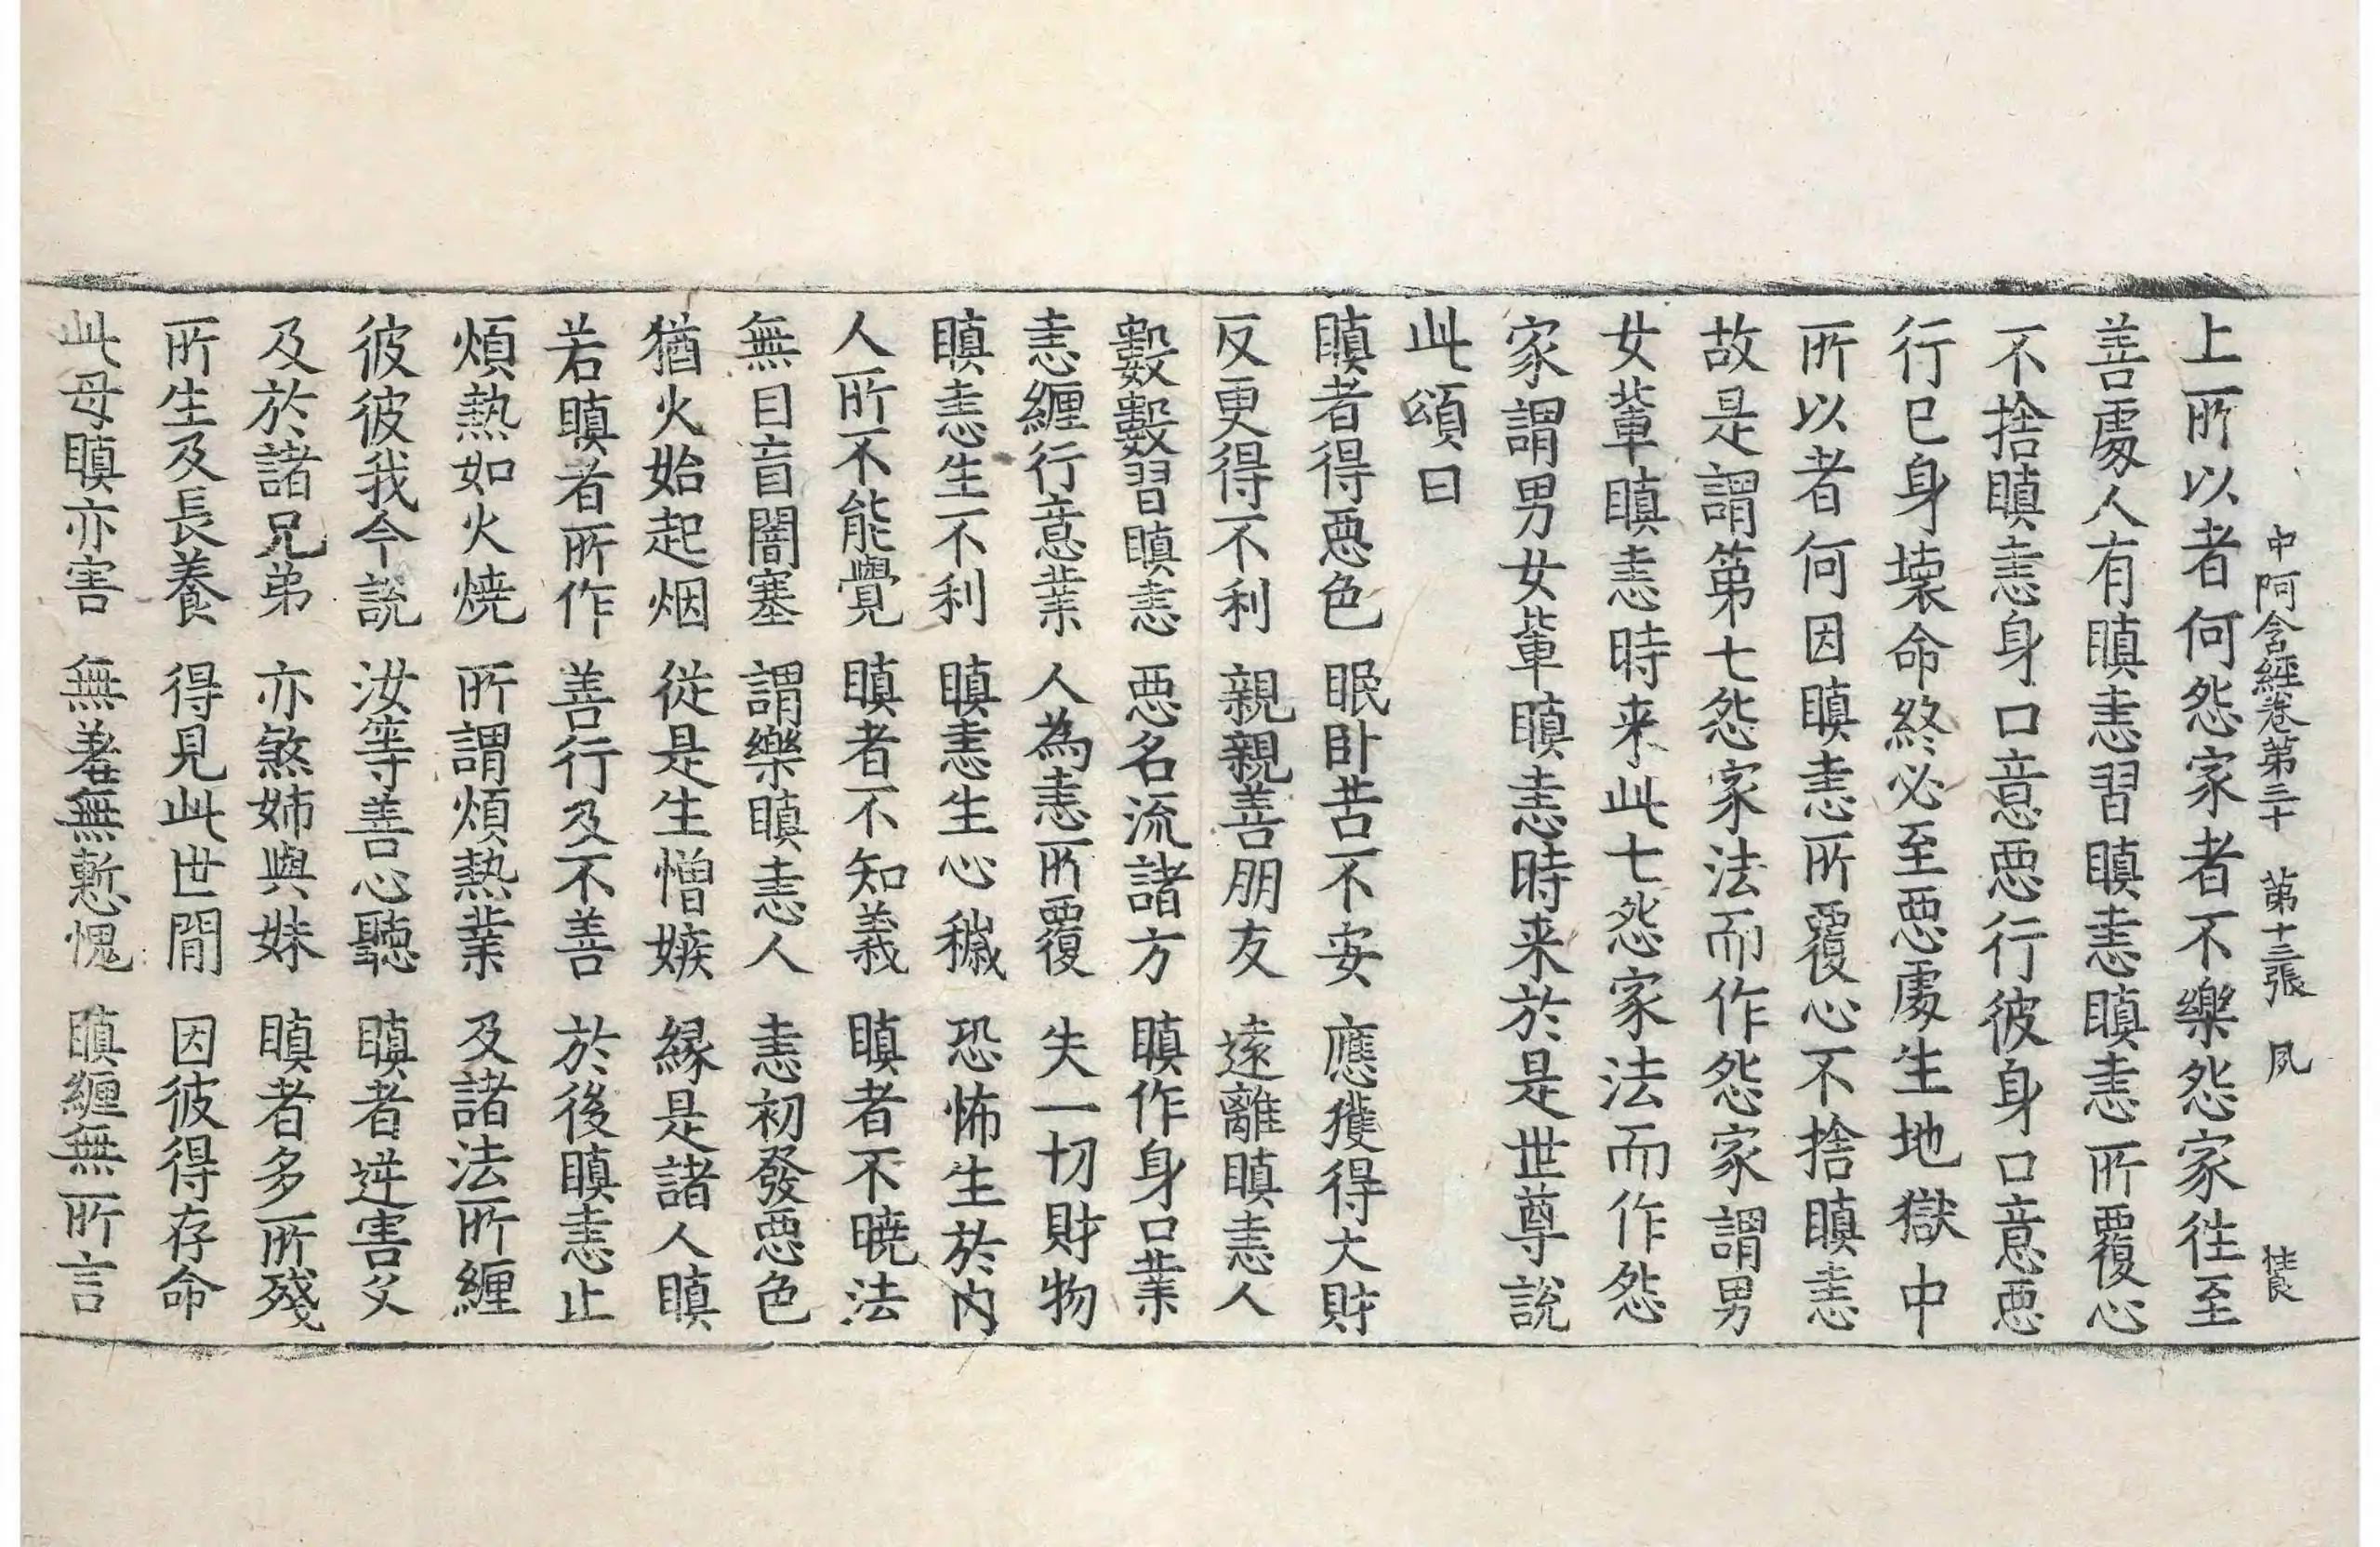 中阿含經卷第三十　第十三張　夙　
上所以者何怨家者不樂怨家往至
善處人有瞋恚習瞋恚瞋恚所覆心
不捨瞋恚身口意惡行彼身口意惡
行已身壞命終必至惡處生地獄中
所以者何因瞋恚所覆心不捨瞋恚
故是謂第七怨家法而作怨家謂男
女輩瞋恚時来此七怨家法而作怨
家謂男女輩瞋恚時来於是世尊說
此頌曰
瞋者得惡色　眠卧苦不安　應獲得大財
反更得不利　親親善朋友　遠離瞋恚人
數數習瞋恚　惡名流諸方　瞋作身口業
恚纏行意業　人為恚所覆　失一切財物
瞋恚生不利　瞋恚生心穢　恐怖生於内
人所不能覺　瞋者不知義　瞋者不曉法
無目盲闇塞　謂樂瞋恚人　恚初發惡色
猶火始起烟　從是生憎嫉　緣是諸人瞋
若瞋者所作　善行及不善　於後瞋恚止
煩熱如火燒　所謂煩熱業　及諸法所纏
彼彼我今說　汝等善心聽　瞋者逆害父
及於諸兄弟　亦煞姉與妹　瞋者多所殘
所生及長養　得見此世間　因彼得存命
此母瞋亦害　無羞無慙愧　瞋纏無所言